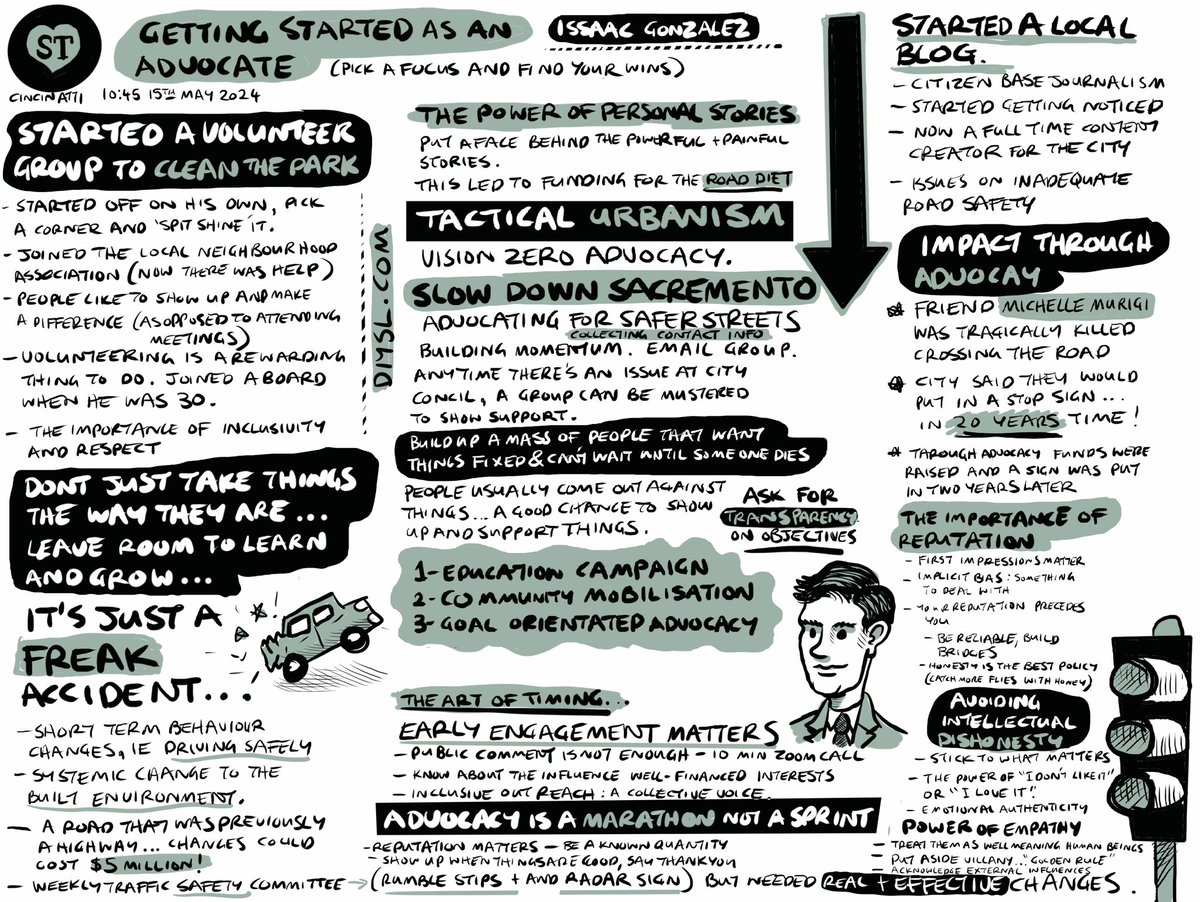 ST
GETTING STARTED AS AN
ADVOCATE (PICK A FOCUS AND FIND YOUR WINS)
ISSAAC GONZALEZ
CINCINATTI 10:45 15TH MAY 2024
STARTED A VOLUNTEER
GROUP TO CLEAN THE PARK
- STARTED OFF ON HIS OWN, PICK
A CORNER AND 'SPIT SHINE' IT.
- JOINED THE LOCAL NEIGHBOURHOOD
ASSOCIATION (NOW THERE WAS HELP)
- PEOPLE LIKE TO SHOW UP AND MAKE
A DIFFERENCE (AS OPPOSED TO ATTENDING
MEETINGS)
- VOLUNTEERING IS A REWARDING
THING TO DO. JOINED A BOARD
WHEN HE WAS 30.
- THE IMPORTANCE OF INCLUSIVITY
AND RESPECT
DONT JUST TAKE THINGS
THE WAY THEY ARE...
LEAVE ROOM TO LEARN
AND GROW...
IT'S JUST A
FREAK
ACCIDENT...
- SHORT TERM BEHAVIOUR
CHANGES, IE DRIVING SAFELY
- SYSTEMIC CHANGE TO THE
BUILT ENVIRONMENT.
- A ROAD THAT WAS PREVIOUSLY
A HIGHWAY... CHANGES COULD
COST $5 MILLION!
- WEEKLY TRAFFIC SAFETY COMMITTEE → (RUMBLE STIPS + AND RADAR SIGN) BUT NEEDED REAL + EFFECTIVE CHANGES.
DIMSL.COM
THE POWER OF PERSONAL STORIES
PUT A FACE BEHIND THE POWERFUL + PAINFUL
STORIES.
THIS LED TO FUNDING FOR THE ROAD DIET
TACTICAL URBANISM
VISION ZERO ADVOCACY.
SLOW DOWN SACREMENTO
ADVOCATING FOR SAFER STREETS
COLLECTING CONTACT INFO
BUILDING MOMENTUM. EMAIL GROUP.
ANYTIME THERE'S AN ISSUE AT CITY
CONCIL, A GROUP CAN BE MUSTERED
TO SHOW SUPPORT.
BUILD UP A MASS OF PEOPLE THAT WANT
THINGS FIXED & CAN'T WAIT UNTIL SOMEONE DIES
PEOPLE USUALLY COME OUT AGAINST
THINGS... A GOOD CHANCE TO SHOW
UP AND SUPPORT THINGS.
ASK FOR
TRANSPARENCY
ON OBJECTIVES
1- EDUCATION CAMPAIGN
2- COMMUNITY MOBILISATION
3- GOAL ORIENTATED ADVOCACY
THE ART OF TIMING...
EARLY ENGAGEMENT MATTERS
- PUBLIC COMMENT IS NOT ENOUGH - 10 MIN ZOOM CALL
- KNOW ABOUT THE INFLUENCE WELL-FINANCED INTERESTS
- INCLUSIVE OUT REACH : A COLLECTIVE VOICE.
ADVOCACY IS A MARATHON NOT A SPRINT
- REPUTATION MATTERS - BE A KNOWN QUANTITY
- SHOW UP WHEN THINGS ARE GOOD, SAY THANK YOU
STARTED A LOCAL
BLOG.
- CITIZEN BASE JOURNALISM
- STARTED GETTING NOTICED
- NOW A FULL TIME CONTENT
CREATOR FOR THE CITY
- ISSUES ON INADEQUATE
ROAD SAFETY
IMPACT THROUGH
ADVOCAY
* FRIEND MICHELLE MURIGI
WAS TRAGICALLY KILLED
CROSSING THE ROAD
* CITY SAID THEY WOULD
PUT IN A STOP SIGN...
IN 20 YEARS TIME!
* THROUGH ADVOCACY FUNDS WERE
RAISED AND A SIGN WAS PUT
IN TWO YEARS LATER
THE IMPORTANCE OF
REPUTATION
- FIRST IMPRESSIONS MATTER
- IMPLICIT BIAS : SOMETHING
TO DEAL WITH
- YOUR REPUTATION PRECEDES
YOU
- BE RELIABLE, BUILD
BRIDGES
- HONESTY IS THE BEST POLICY
(CATCH MORE FLIES WITH HONEY)
AVOIDING
INTELLECTUAL
DISHONESTY
- STICK TO WHAT MATTERS
- THE POWER OF "I DON'T LIKE IT"
OR "I LOVE IT"
- EMOTIONAL AUTHENTICITY
POWER OF EMPATHY
- TREAT THEM AS WELL MEANING HUMAN BEINGS
- PUT ASIDE VILLANY... "GOLDEN RULE"
- ACKNOWLEDGE EXTERNAL INFLUENCES